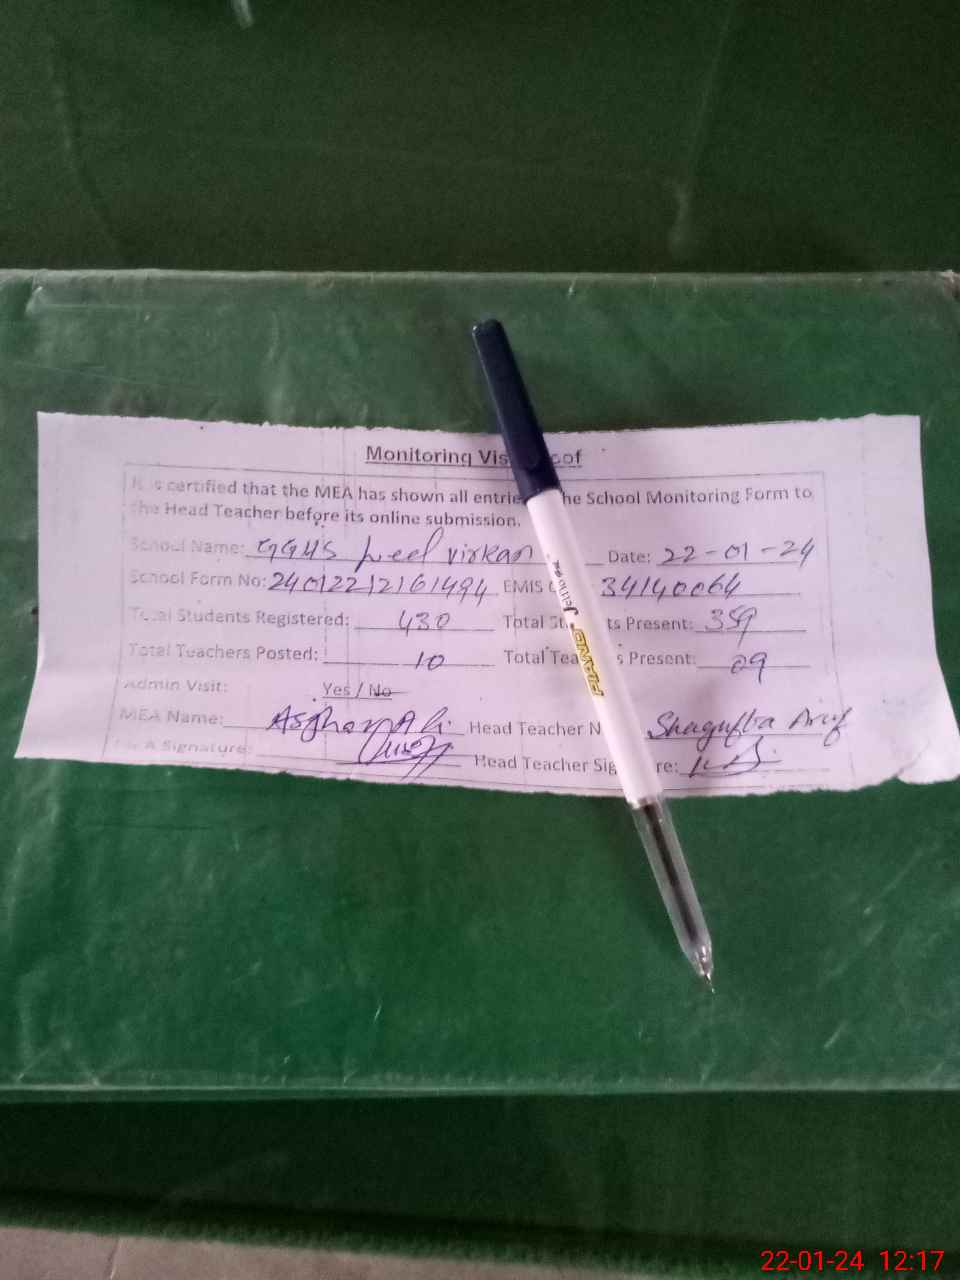 Monitoring Vis oof
It is certified that the MEA has shown all entrie he School Monitoring Form to
the Head Teacher before its online submission.
School Name: GGHS virkan Date: 22-01-24
School Form No: 24012212161494 EMIS 34140064
Total Students Registered: 430 Total St ts Present: 359
Total Teachers Posted: 10 Total Tea s Present: 09
Admin Visit: Yes / No
MEA Name: Asghar Ali Head Teacher N Shagufta Arif
MEA Signature: Head Teacher Sig re:
Jellio
PIANO
22-01-24 12:17